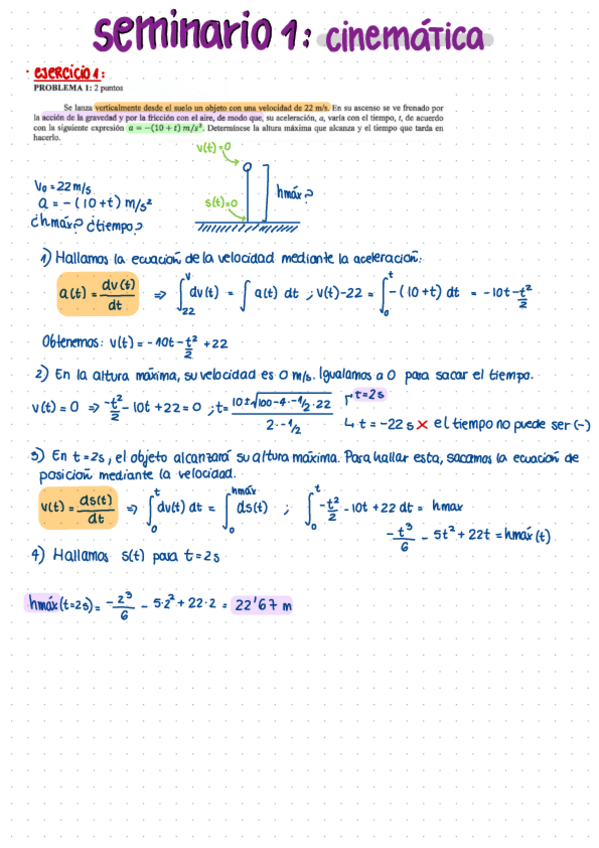 seminario 1: cinemática
· EJERCICIO 1:
PROBLEMA 1: 2 puntos
Se lanza verticalmente desde el suelo un objeto con una velocidad de 22 m/s. En su ascenso se ve frenado por
la acción de la gravedad y por la fricción con el aire, de modo que, su aceleración, a, varía con el tiempo, t, de acuerdo
con la siguiente expresión a = −(10 + t) m/s². Determínese la altura máxima que alcanza y el tiempo que tarda en
hacerlo.
v(t)=0
hmáx?
s(t)=0
V₀ = 22 m/s
a = - (10+t) m/s²
¿hmáx? ¿tiempo?
1) Hallamos la ecuación de la velocidad mediante la aceleración:
a(t) = dv(t)/dt ⇒ ∫₂₂ᵛ dv(t) = ∫ a(t) dt ; v(t)-22 = ∫₀ᵗ -(10+t) dt = -10t - t²/2
Obtenemos: v(t) = -10t - t²/2 + 22
2) En la altura máxima, su velocidad es 0 m/s. Igualamos a 0 para sacar el tiempo.
v(t) = 0 ⇒ -t²/2 - 10t + 22 = 0 ; t = 10±√100-4·-1/2·22 / 2·-1/2
t=2s
t = -22 s × el tiempo no puede ser (-)
3) En t=2s, el objeto alcanzará su altura máxima. Para hallar esta, sacamos la ecuación de
posición mediante la velocidad.
v(t) = ds(t)/dt ⇒ ∫₀ᵗ dv(t) dt = ∫₀ʰᵐᵃ́ˣ ds(t) ; ∫₀ᵗ -t²/2 - 10t + 22 dt = hmax
-t³/6 - 5t² + 22t = hmáx(t)
4) Hallamos s(t) para t=2s
hmáx(t=2s) = -2³/6 - 5·2² + 22·2 = 22'67 m